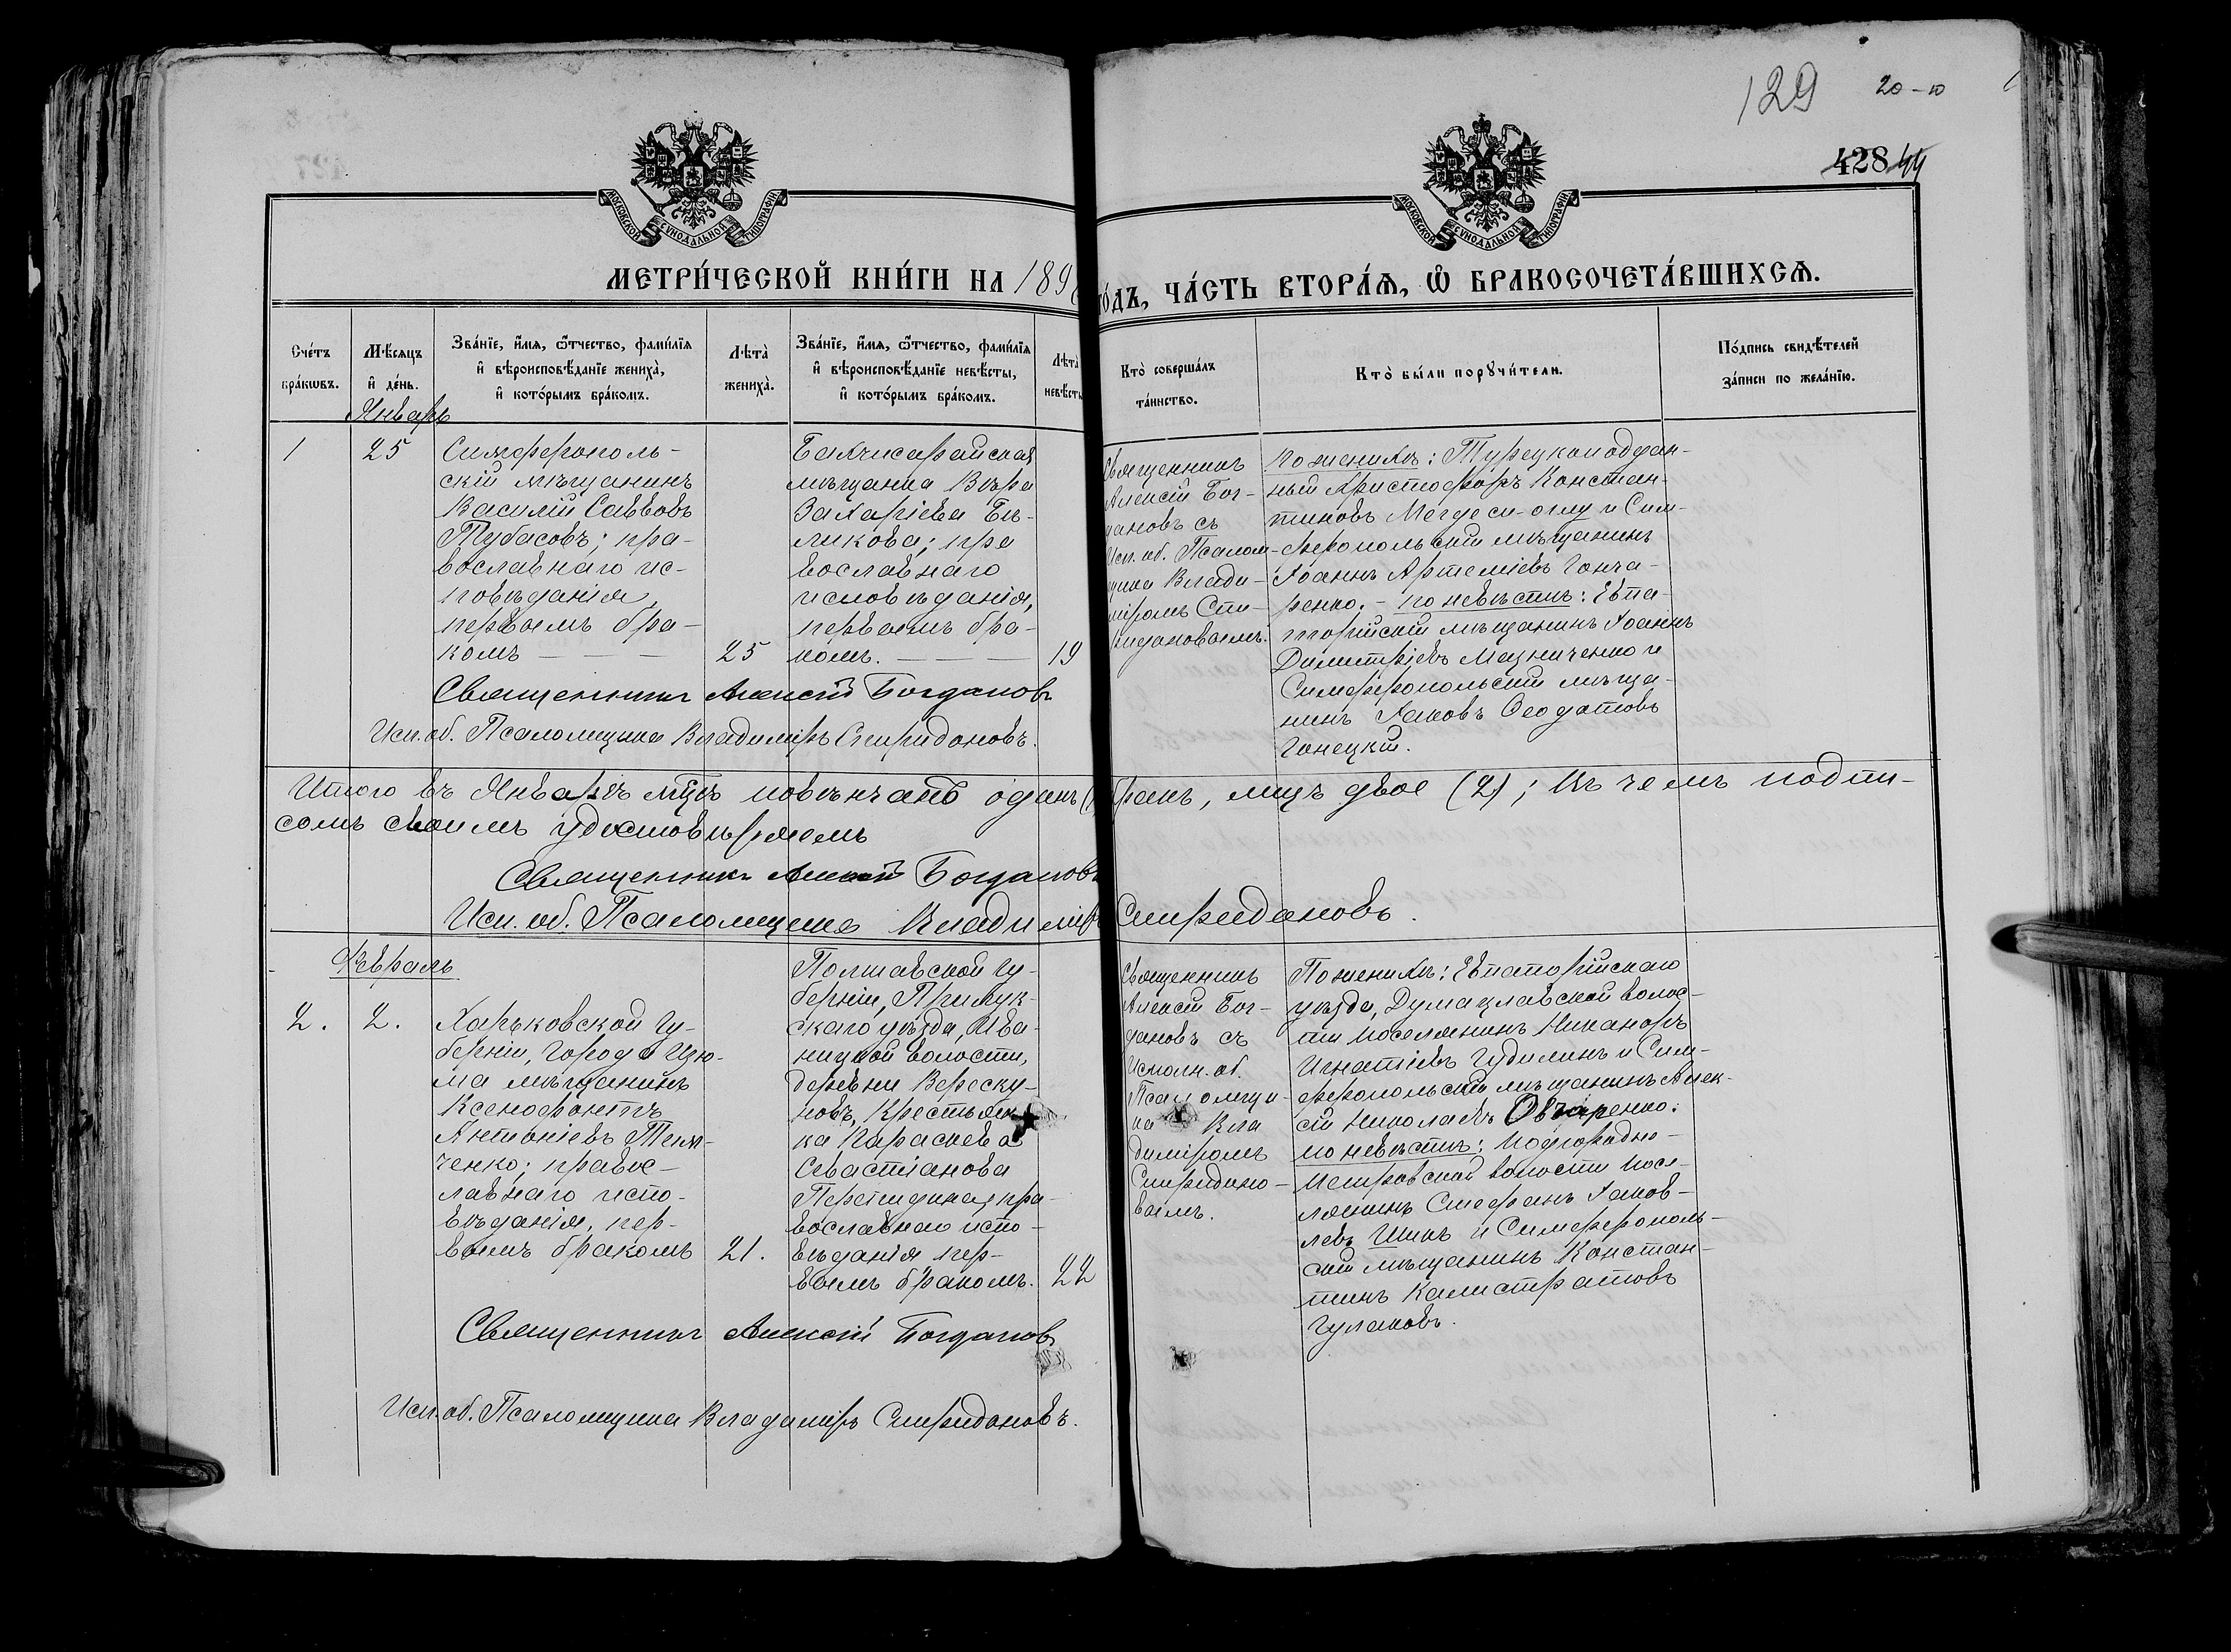 129 20-ю
428 44
МОСКОВСКОЙ СУНОДАЛЬНОЙ ТИПОГРАФІИ
МОСКОВСКОЙ СУНОДАЛЬНОЙ ТИПОГРАФІИ
МЕТРИ́ЧЕСКОЙ КНИ́ГИ НА 189
го́дъ, ЧА́СТЬ ВТОРА́Ѧ, Ѡ҆ БРАКОСОЧЕТА́ВШИХСѦ.
Сче́тъ
бра́кѡвъ.
Мѣ́сѧцъ
и҆ де́нь.
Зва́нїе, и҆́мѧ, ѻ҆́тчество, фами́лїѧ
и҆ вѣроисповѣ́данїе жениха̀,
и҆ кото́рымъ бра́комъ.
Лѣта̀
жениха̀.
Зва́нїе, и҆́мѧ, ѻ҆́тчество, фами́лїѧ
и҆ вѣроисповѣ́данїе невѣ́сты,
и҆ кото́рымъ бра́комъ.
Лѣта̀
невѣ́сты
Кто̀ соверша́лъ
та́инство.
Кто̀ бы́ли порꙋчи́тели.
По́дпись свидѣ́телей
за́писи по жела́нїю.
Январь
1
25
Симферополь-
скій мѣщанинъ
Василій Саввовъ
Тубасовъ; пра-
вославнаго ис-
повѣданія,
первымъ бра-
комъ — — —
25
Бахчисарайская
мѣщанка Вѣра
Захаріева Бѣ-
ликова; пра
вославнаго
исповѣданія,
первымъ бра-
комъ. — — —
19
Священникъ
Алексій Бог-
дановъ съ
Исп. об. Псалом-
щика Влади-
міромъ Спи-
ридоновымъ.
по женихѣ: Турецкоподдан-
ный Христофоръ Констан-
тиновъ Мегдеси-оглу и Сим-
феропольскій мѣщанинъ
Іоаннъ Артеміевъ Гонча-
ренко. - по невѣстѣ: Евпа-
торійскій мѣщанинъ Іоаннъ
Димитріевъ Мазниченко и
Симферопольскій мѣща-
нинъ Іаковъ Ѳеодотовъ
Гонецкій.
Священникъ Алексій Богдановъ
Исп. об. Псаломщика Владиміръ Спиридоновъ.
Итого въ Январѣ мѣцѣ повѣнчано одинъ (1) бракъ, лицъ двое (2); въ чемъ подпи-
сомъ своимъ удостовѣряемъ
Священникъ Алексій Богдановъ
Исп. об. Псаломщика Владиміръ Спиридоновъ.
Февраль
2.
2.
Харьковской гу-
берніи, города Изю-
ма мѣщанинъ
Ксенофонтъ
Антоніевъ Тим-
ченко; правос-
лавнаго испо-
вѣданія, пер-
вымъ бракомъ
21.
Полтавской гу-
берніи, Прилук-
скаго уѣзда, Ива-
ницкой волости,
деревни Вереску-
новъ, крестьян-
ка Параскева
Севастіанова
, пра-
вославнаго испо-
вѣданія пер-
вымъ бракомъ.
22
Священникъ
Алексій Бог-
дановъ съ
Исполн. об.
Псаломщи-
ка Вла
диміромъ
Спиридоно-
вымъ.
По женихѣ: Евпаторійскаго
уѣзда, Думазлавской волос-
ти поселянинъ Никаноръ
Игнатіевъ Гудилинъ и Сим-
феропольскій мѣщанинъ Алек-
сій Николаевъ Овчаренко.
по невѣстѣ: Подгородне-
Петровской волости посе-
лянинъ Стефанъ Іаков-
левъ и Симферополь-
скій мѣщанинъ Констан-
тинъ Калистратовъ
Гулаковъ.
Священникъ Алексій Богдановъ
Исп. об. Псаломщика Владиміръ Спиридоновъ.